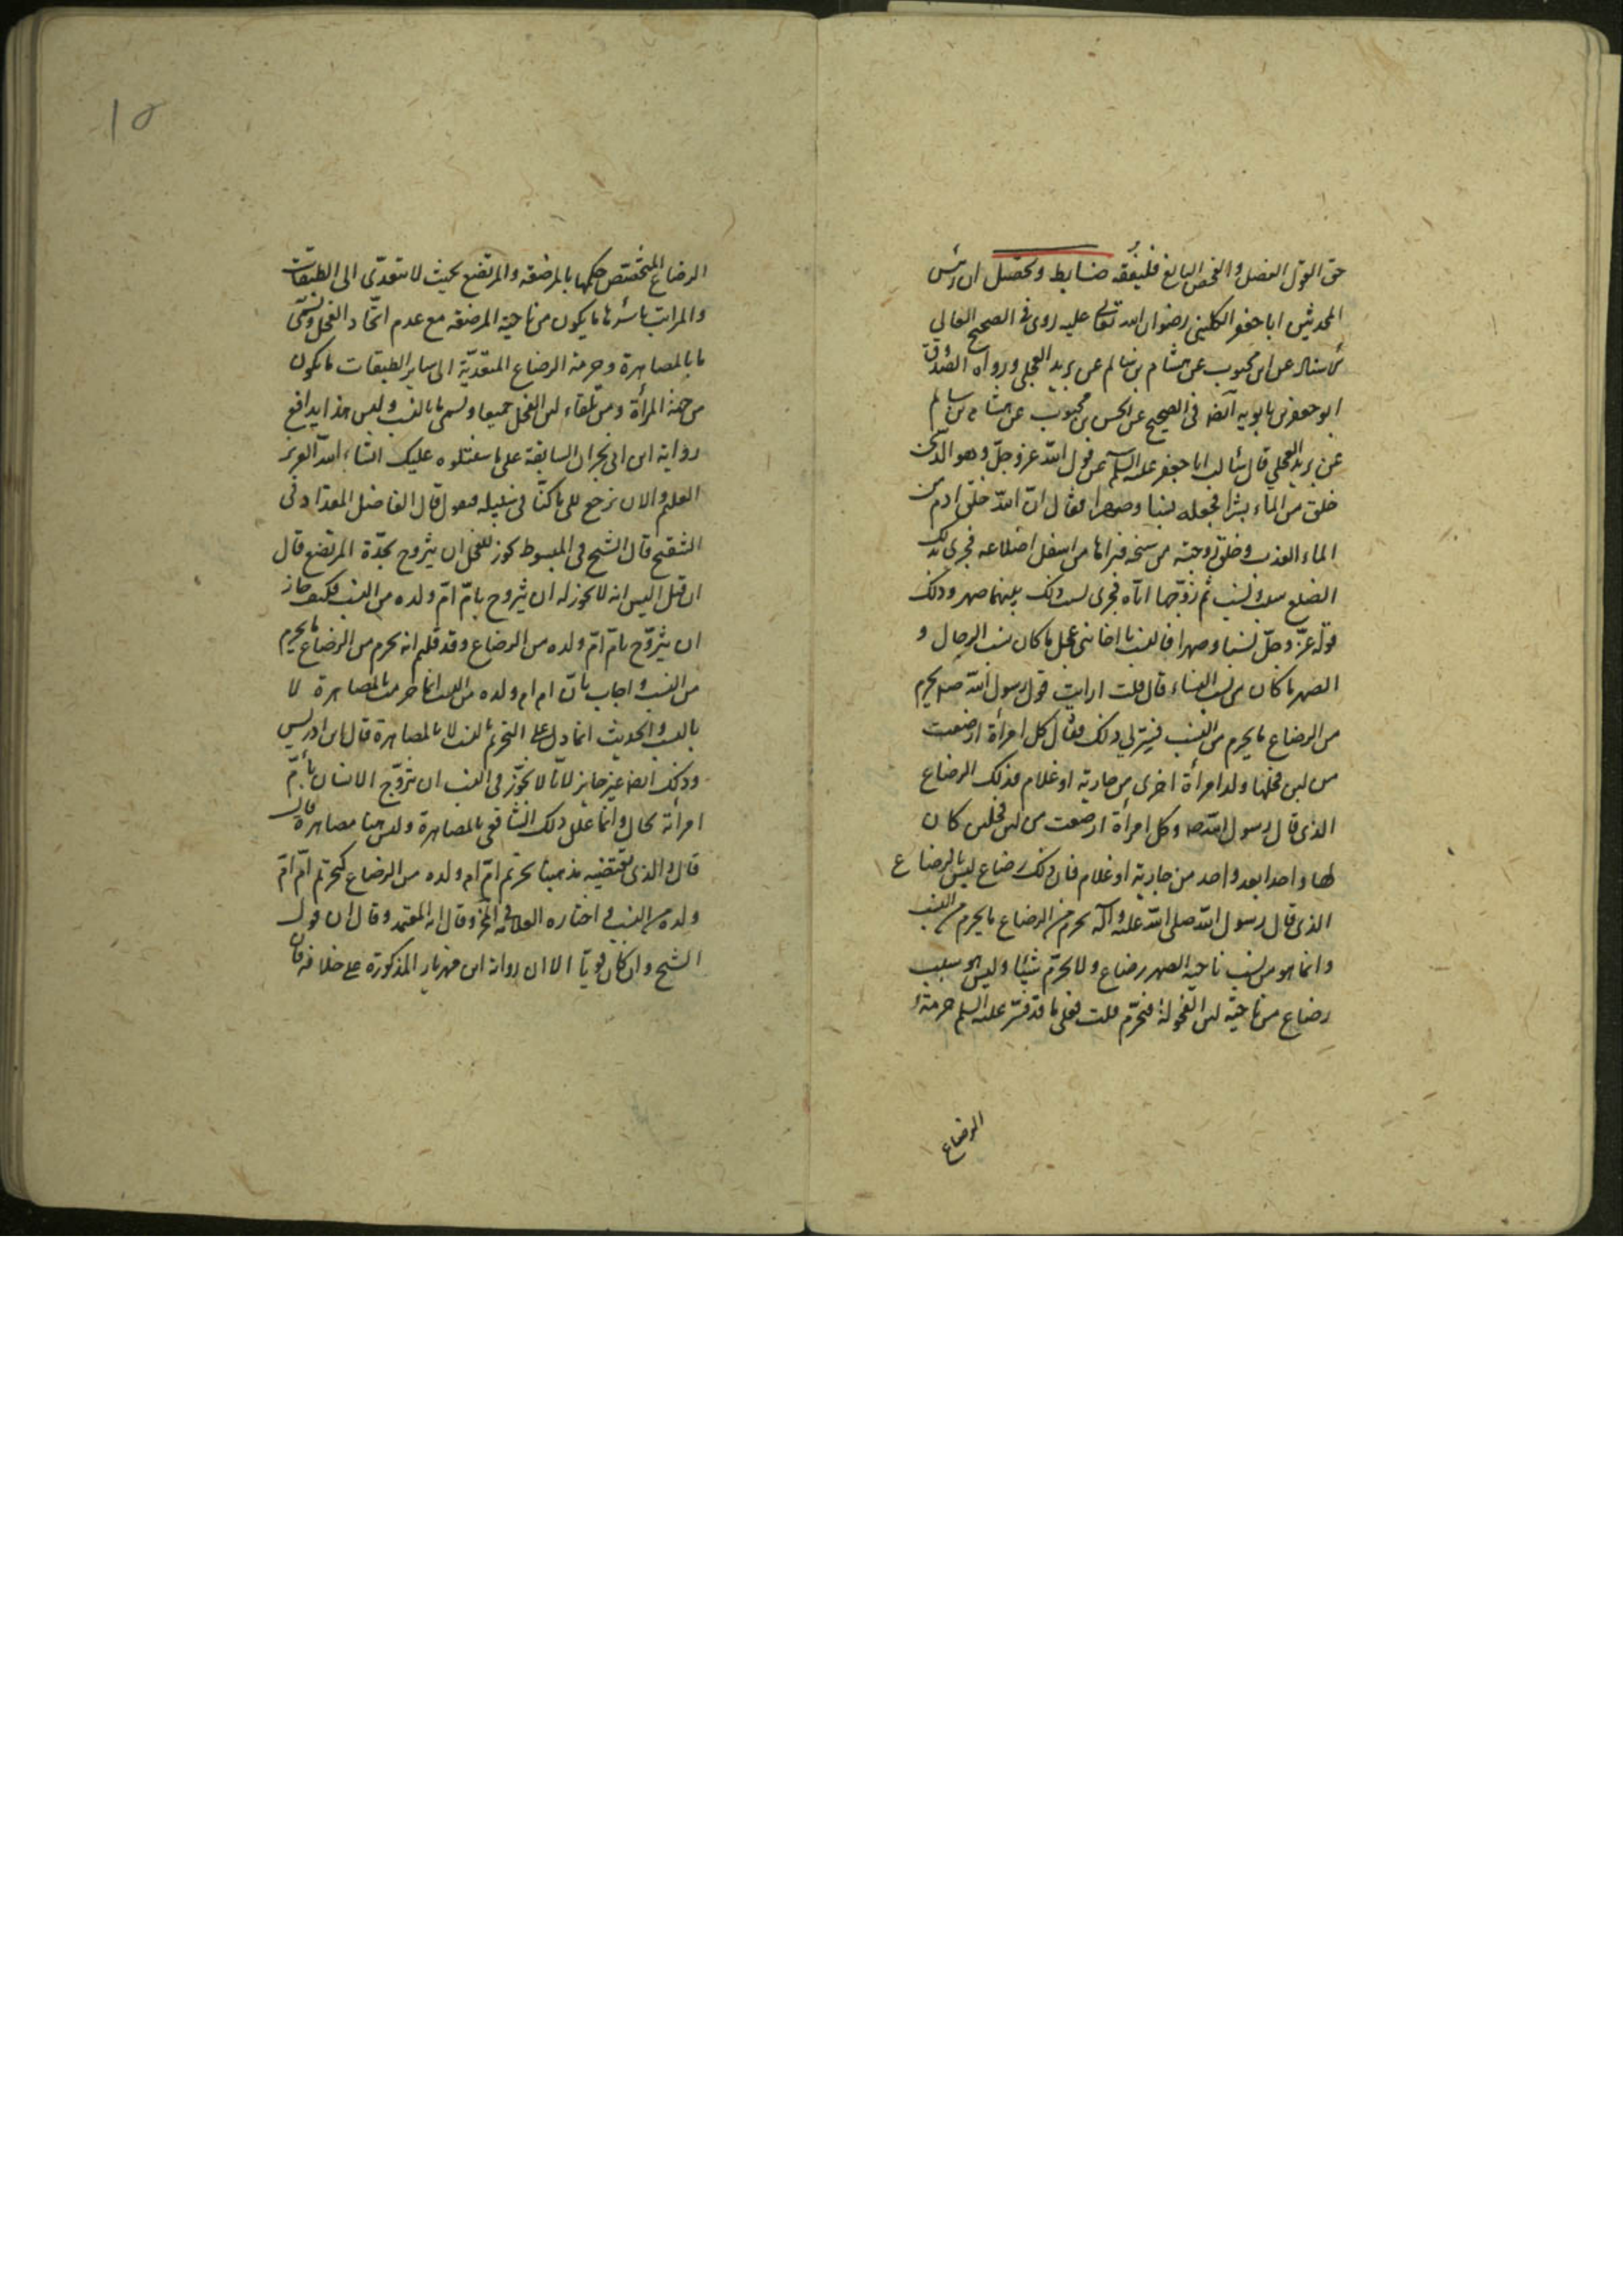 حق القول الفصل والفحص البالغ فليفقه ضابط وتحصيل ان رئيس
المحدثين ابا جعفر الكليني رضوان الله تعالى عليه روى في الصحيح العالي
الاسناد عن ابن محبوب عن هشام بن سالم عن بريد العجلي ورواه الصدوق
ابو جعفر بن بابويه ايضا في الصحيح عن الحسن بن محبوب عن هشام بن سالم
عن بريد العجلي قال سألت ابا جعفر عليه السلم عن قول الله عز وجل وهو الذي
خلق من الماء بشرا فجعله نسبا وصهرا فقال ان الله خلق ادم من
الماء العذب وخلق زوجته من سنخه فبراها من اسفل اضلاعه فجرى بذلك
الضلع سبب ونسب ثم زوجها اياه فجرى بسبب ذلك بينهما صهر وذلك
قوله عز وجل نسبا وصهرا فالنسب يا اخا بني عجل ما كان بسبب الرجال و
الصهر ما كان من سبب النساء قال قلت ارايت قول رسول الله ص يحرم
من الرضاع ما يحرم من النسب فسر لي ذلك فقال كل امرأة ارضعت
من لبن فحلها ولد امرأة اخرى من جارية او غلام فذلك الرضاع
الذي قال رسول الله ص وكل امرأة ارضعت من لبن فحلين كان
لها واحدا بعد واحد من جارية او غلام فان ذلك رضاع ليس بالرضاع
الذي قال رسول الله صلى الله عليه وآله يحرم من الرضاع ما يحرم من النسب
وانما هو من نسب ناحية الصهر رضاع ولا يحرم شيئا وليس هو سبب
رضاع من ناحية لبن الفحولة فيحرم قلت فعلى ما قد فسر عليه السلم حرمة
الرضاع
10
الرضاع المختص حكمها بالمرضعة والمرتضع بحيث لا يتعدى الى الطبقات
والمراتب باسرها ما يكون من ناحية المرضعة مع عدم اتحاد الفحل وتسمى
ما بالمصاهرة وحرمة الرضاع المتعدية الى ساير الطبقات ما يكون
من جهة المرأة ومن تلقاء لبن الفحل جميعا وتسمى ما بالنسب وليس هذا يدافع
رواية ابن ابي نجران السابقة على ما سنتلوه عليك انشاء الله العزيز
العليم والان نرجع الى ما كنا في سبيله فنقول قال الفاضل المقداد في
التنقيح قال الشيخ في المبسوط يجوز للفحل ان يتزوج بجدة المرتضع قال
ان قيل اليس انه لا يجوز له ان يتزوج بام ام ولده من النسب فكيف جاز
ان يتزوج بام ام ولده من الرضاع وقد قلتم انه يحرم من الرضاع ما يحرم
من النسب واجاب بان ام ام ولده من النسب انما حرمت بالمصاهرة لا
بالنسب والحديث انما دل على التحريم بالنسب لا بالمصاهرة قال ابن ادريس
وذلك ايضا غير جايز لانا لا نجوز في النسب ان يتزوج الانسان بام
امرأته بحال وانما علل ذلك الشافعي بالمصاهرة وليس هنا مصاهرة قال
قال والذي يقتضيه مذهبنا تحريم ام ام ولده من الرضاع كتحريم ام ام
ولده من النسب واختاره العلامة في المخ وقال انه المعتمد وقال ان قول
الشيخ وان كان قويا الا ان رواية ابن مهزيار المذكورة على خلافه فان